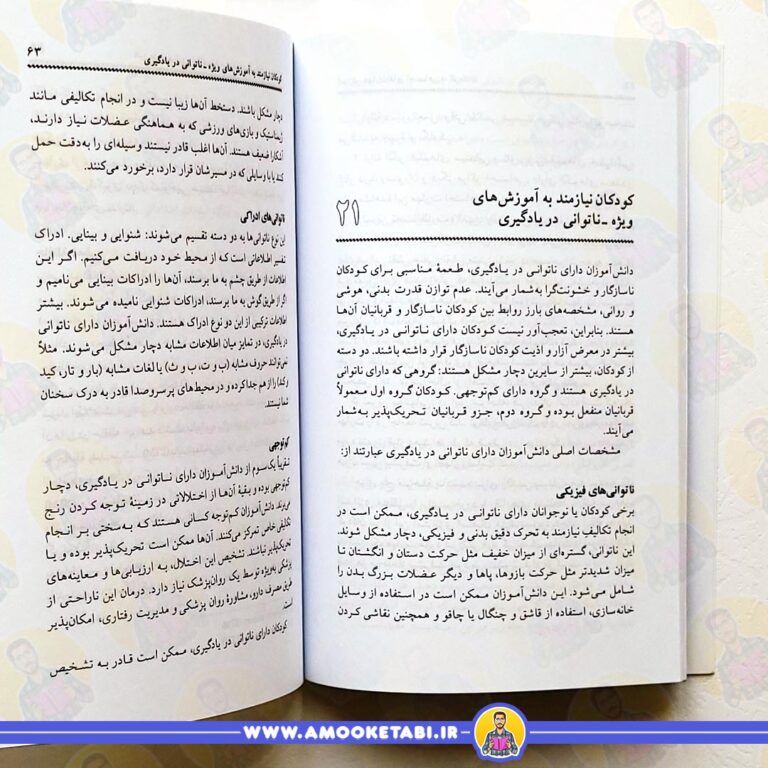 کودکان نیازمند به آموزش‌های
ویژه ـ ناتوانی در یادگیری
۲۱
دانش‌آموزان دارای ناتوانی در یادگیری، طعمهٔ مناسبی برای کودکان
ناسازگار و خشونت‌گرا به‌شمار می‌آیند. عدم توازن قدرت بدنی، هوشی
و روانی، مشخصه‌های بارز روابط بین کودکان ناسازگار و قربانیان آن‌ها
هستند. بنابراین، تعجب‌آور نیست کودکان دارای ناتوانی در یادگیری،
بیشتر در معرض آزار و اذیت کودکان ناسازگار قرار داشته باشند. دو دسته
از کودکان، بیشتر از سایرین دچار مشکل هستند: گروهی که دارای ناتوانی
در یادگیری هستند و گروه دارای کم‌توجهی. کودکان گروه اول معمولاً
قربانیان منفعل بوده و گروه دوم، جزو قربانیان تحریک‌پذیر به‌شمار
می‌آیند.
مشخصات اصلی دانش‌آموزان دارای ناتوانی در یادگیری عبارتند از:
ناتوانی‌های فیزیکی
برخی کودکان یا نوجوانان دارای ناتوانی در یادگیری، ممکن است در
انجام تکالیف نیازمند به تحرک دقیق بدنی و فیزیکی، دچار مشکل شوند.
این ناتوانی، گستره‌ای از میزان خفیف مثل حرکت دستان و انگشتان تا
میزان شدیدتر مثل حرکت بازوها، پاها و دیگر عضلات بزرگ بدن را
شامل می‌شود. این دانش‌آموزان ممکن است در استفاده از وسایل
خانه‌سازی، استفاده از قاشق و چنگال یا چاقو و همچنین نقاشی کردن
کودکان نیازمند به آموزش‌های ویژه ـ ناتوانی در یادگیری ۶۳
دچار مشکل باشند. دستخط آن‌ها زیبا نیست و در انجام تکالیفی مانند
ژیمناستیک و بازی‌های ورزشی که به هماهنگی عضلات نیاز دارند،
آشکارا ضعیف هستند. آن‌ها اغلب قادر نیستند وسیله‌ای را به‌دقت حمل
کنند یا با وسایلی که در مسیرشان قرار دارد، برخورد می‌کنند.
ناتوانی‌های ادراکی
این نوع ناتوانی‌ها به دو دسته تقسیم می‌شوند: شنوایی و بینایی. ادراک
تفسیر اطلاعاتی است که از محیط خود دریافت می‌کنیم. اگر این
اطلاعات از طریق چشم به ما برسند، آن‌ها را ادراکات بینایی می‌نامیم و
اگر از طریق گوش به ما برسند، ادراکات شنوایی نامیده می‌شوند. بیشتر
اطلاعات ترکیبی از این دو نوع ادراک هستند. دانش‌آموزان دارای ناتوانی
در یادگیری، در تمایز میان اطلاعات مشابه دچار مشکل می‌شوند. مثلاً
نمی‌توانند حروف مشابه (ب و ت، ب و ث) یا لغات مشابه (بار و تار، کید
رکد) را از هم جدا کرده و در محیط‌های پرسروصدا قادر به درک سخنان
شما نیستند.
کم‌توجهی
تقریباً یک‌سوم از دانش‌آموزان دارای ناتوانی در یادگیری، دچار
کم‌توجهی بوده و بقیهٔ آن‌ها از اختلالاتی در زمینهٔ توجه کردن رنج
می‌برند. دانش‌آموزان کم‌توجه کسانی هستند که به‌سختی بر انجام
تکالیفی خاص تمرکز می‌کنند. آن‌ها ممکن است تحریک‌پذیر بوده و یا
تحریک‌پذیر نباشند. تشخیص این اختلال، به ارزیابی‌ها و معاینه‌های
پزشکی به‌ویژه توسط یک روان‌پزشک نیاز دارد. درمان این ناراحتی از
طریق مصرف دارو، مشاورهٔ روان پزشکی و مدیریت رفتاری، امکان‌پذیر
است.
کودکان دارای ناتوانی در یادگیری، ممکن است قادر به تشخیص
WWW.AMOOKETABI.IR